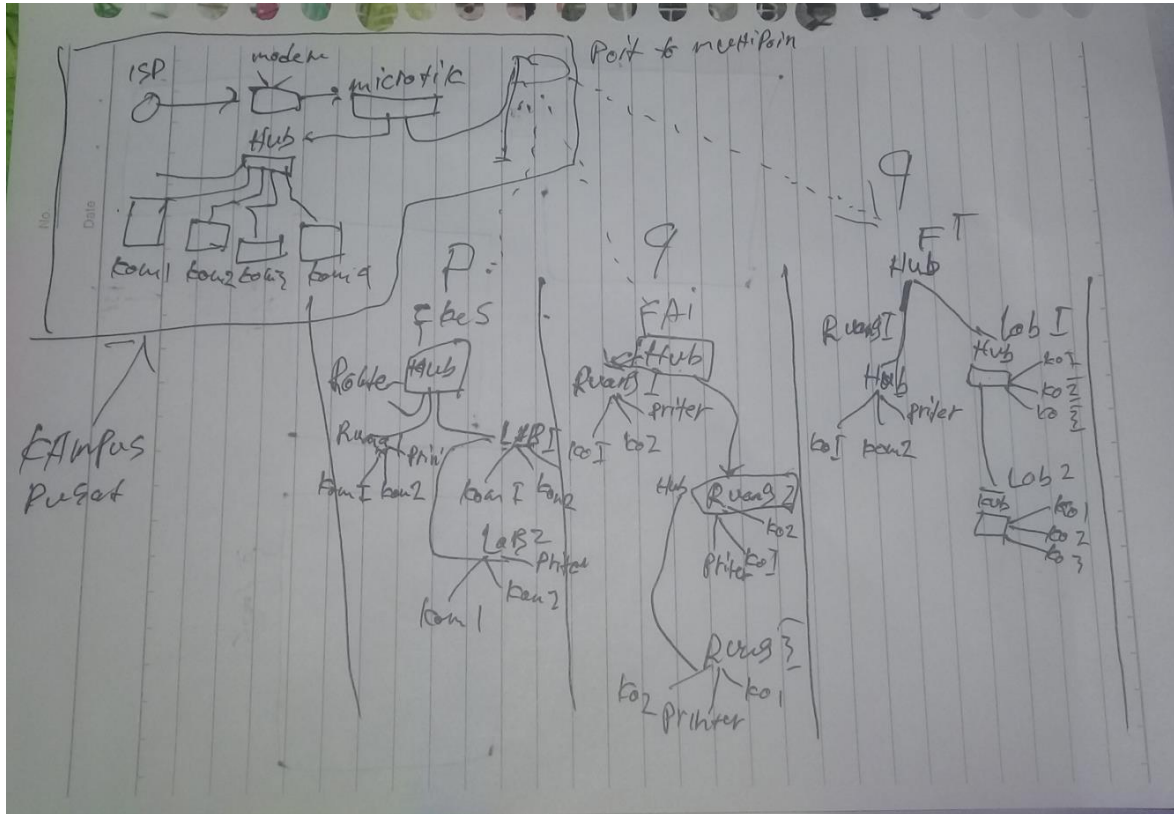 No.
Date
Poit to multipoin
ISP
modem
microtik
Hub
kom1 kom2 kom3 kom4
KAmpus
Pusat
FkeS
Hub
Route
Ruang
Prin
komI kom2
LABI
komI kom2
LaB2
Priter
kom1
kom2
FAi
Hub
Ruang I
Priter
koI
ko2
Hub
Ruang 2
ko2
Priter
koI
Ruang 3
ko2
Printer
ko1
FT
Hub
RuangI
Hub
Priter
koI
kom2
Lob I
Hub
koI
ko2
ko3
Lob 2
Hub
ko1
ko2
ko3